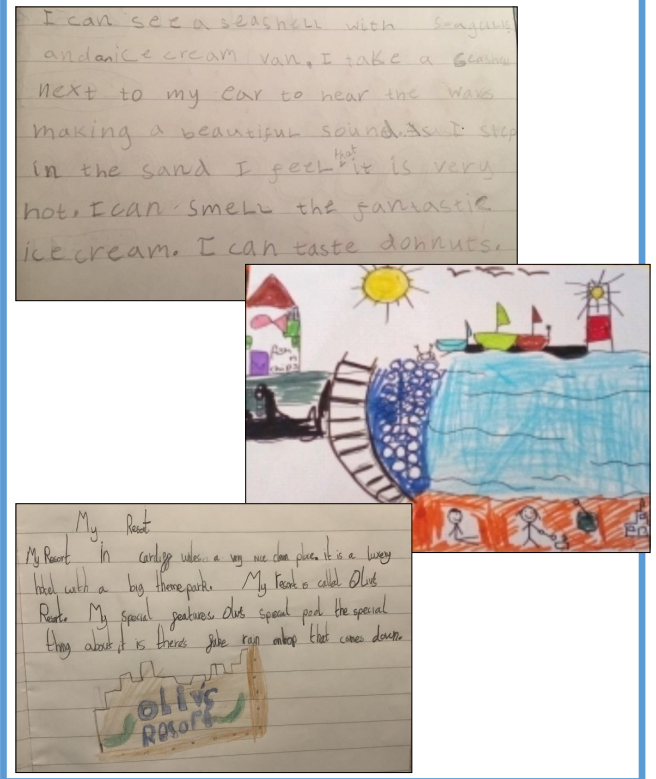 I can see a seashell with seagulls
and an ice cream van. I take a
next to my ear to hear the waves
making a beautiful sound. As I step
in the sand I feel that it is very
hot. I can smell the fantastic
ice cream. I can taste dohnuts.
fish n chips
My Resort
My Resort in Cardiff wales a very nice clean place. it is a luxery
hotel with a big theme park. My resort is called Olivs
Resort. My special features Olivs special pool the special
thing about it is there's fake rain ontop that comes down.
Olly's
Resort